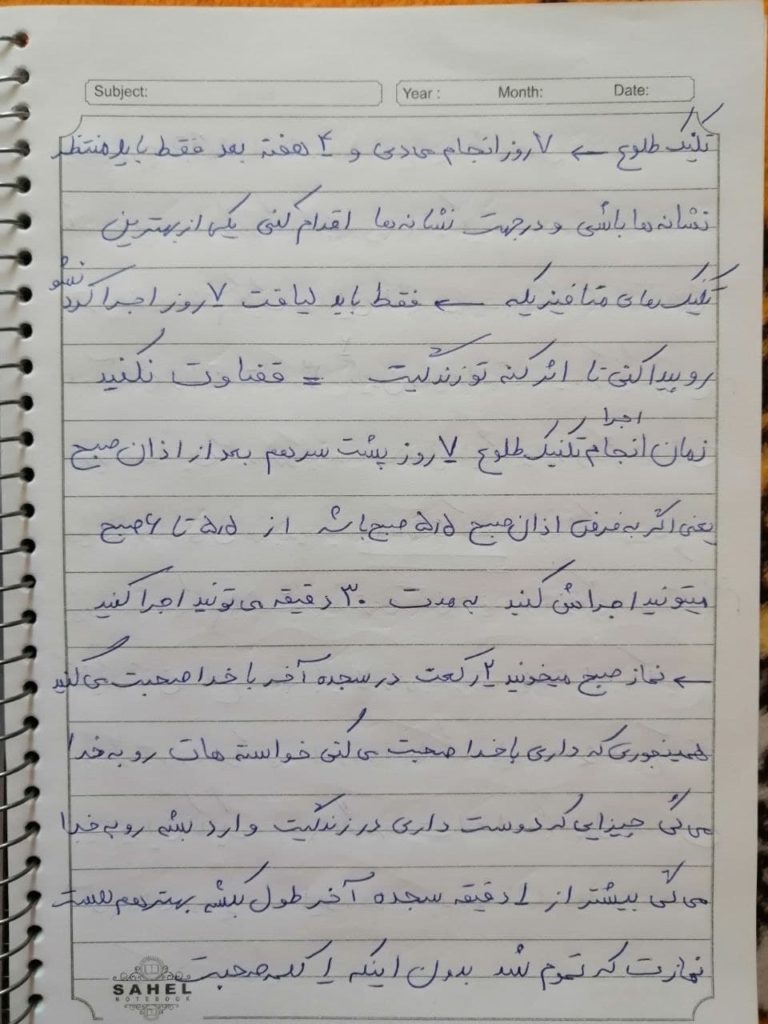 Subject:
Year : Month: Date:
تکنیک طلوع ← ۷ روز انجام می‌دی و ۴ هفته بعد فقط باید منتظر
نشانه ها باشی و در جهت نشانه ها اقدام کنی یکی از بهترین
تکنیک های متافیزیکه ← فقط باید لیاقت ۷ روز اجرا کردنشو
رو پیدا کنی تا اثر کنه تو زندگیت = قضاوت نکنید
اجرا
زمان انجام تکنیک طلوع ۷ روز پشت سر هم بعد از اذان صبح
یعنی اگر به فرض اذان صبح ۵٫۵ صبح باشه از ۵٫۵ تا ۶ صبح
میتونید اجراش کنید به مدت ۳۰ دقیقه می تونید اجرا کنید
← نماز صبح میخونید ۲ رکعت در سجده آخر با خدا صحبت می کنید
همینجوری که داری با خدا صحبت می کنی خواسته هات رو به خدا
می گی چیزایی که دوست داری در زندگیت وارد بشه رو به خدا
می گی بیشتر از ۱ دقیقه سجده آخر طول بکشه بهتر هم هست
نمازت که تموم شد بدون اینکه ۱ کلمه صحبت
SAHEL
NOTEBOOK